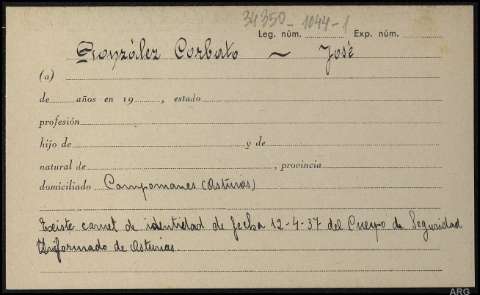 34350-1044-1
Leg. núm. Exp. núm.
González Corbato ~ José
(a)
de años en 19 , estado
profesión
hijo de y de
natural de , provincia
domiciliado Campomanes (Asturias)
Existe carnet de identidad de fecha 12-4-37 del Cuerpo de Seguridad
Uniformado de Asturias.
ARG